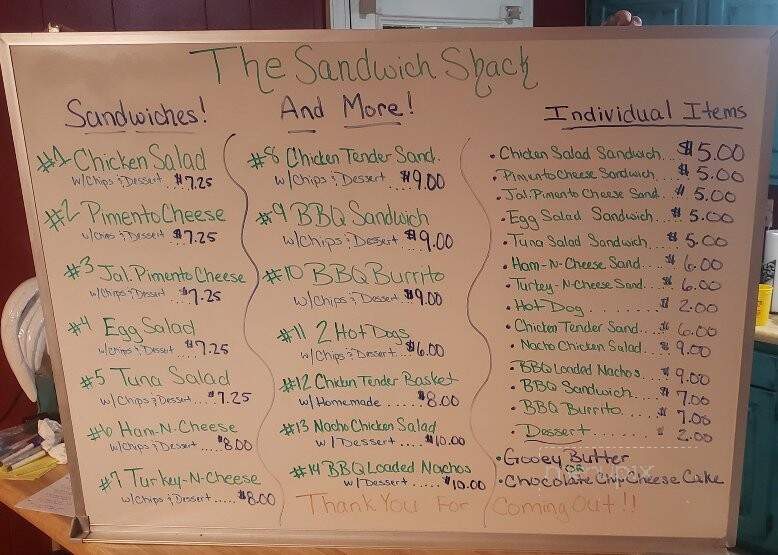 The Sandwich Shack
Sandwiches!
#1 Chicken Salad
w/Chips & Dessert. $7.25
#2 Pimento Cheese
w/Chips & Dessert $7.25
#3 Jal. Pimento Cheese
w/Chips & Dessert.. $7.25
#4 Egg Salad
w/Chips & Dessert $7.25
#5 Tuna Salad
w/Chips & Dessert....$7.25
#6 Ham-N-Cheese
w/Chips & Dessert....$8.00
#7 Turkey-N-Cheese
w/Chips & Dessert.....$8.00
And More!
#8 Chicken Tender Sand.
w/Chips & Dessert...$9.00
#9 BBQ Sandwich
w/Chips & Dessert..$9.00
#10 BBQ Burrito
w/Chips & Dessert...$9.00
#11 2 Hot Dogs
w/Chips & Dessert...$6.00
#12 Chicken Tender Basket
w/Homemade....$8.00
#13 Nacho Chicken Salad
w/Dessert....$10.00
#14 BBQ Loaded Nachos
w/Dessert.....$10.00
Individual Items
• Chicken Salad Sandwich... $5.00
• Pimento Cheese Sandwich.. $5.00
• Jal. Pimento Cheese Sand... $5.00
• Egg Salad Sandwich.... $5.00
• Tuna Salad Sandwich.... $5.00
• Ham-N-Cheese Sand.... $6.00
• Turkey-N-Cheese Sand.... $6.00
• Hot Dog......... $2.00
• Chicken Tender Sand.... $6.00
• Nacho Chicken Salad... $9.00
• BBQ Loaded Nachos.... $9.00
• BBQ Sandwich....... $7.00
• BBQ Burrito....... $7.00
• Dessert......... $2.00
• Gooey Butter
OR
• Chocolate Chip Cheese Cake
Thank You For Coming Out!!